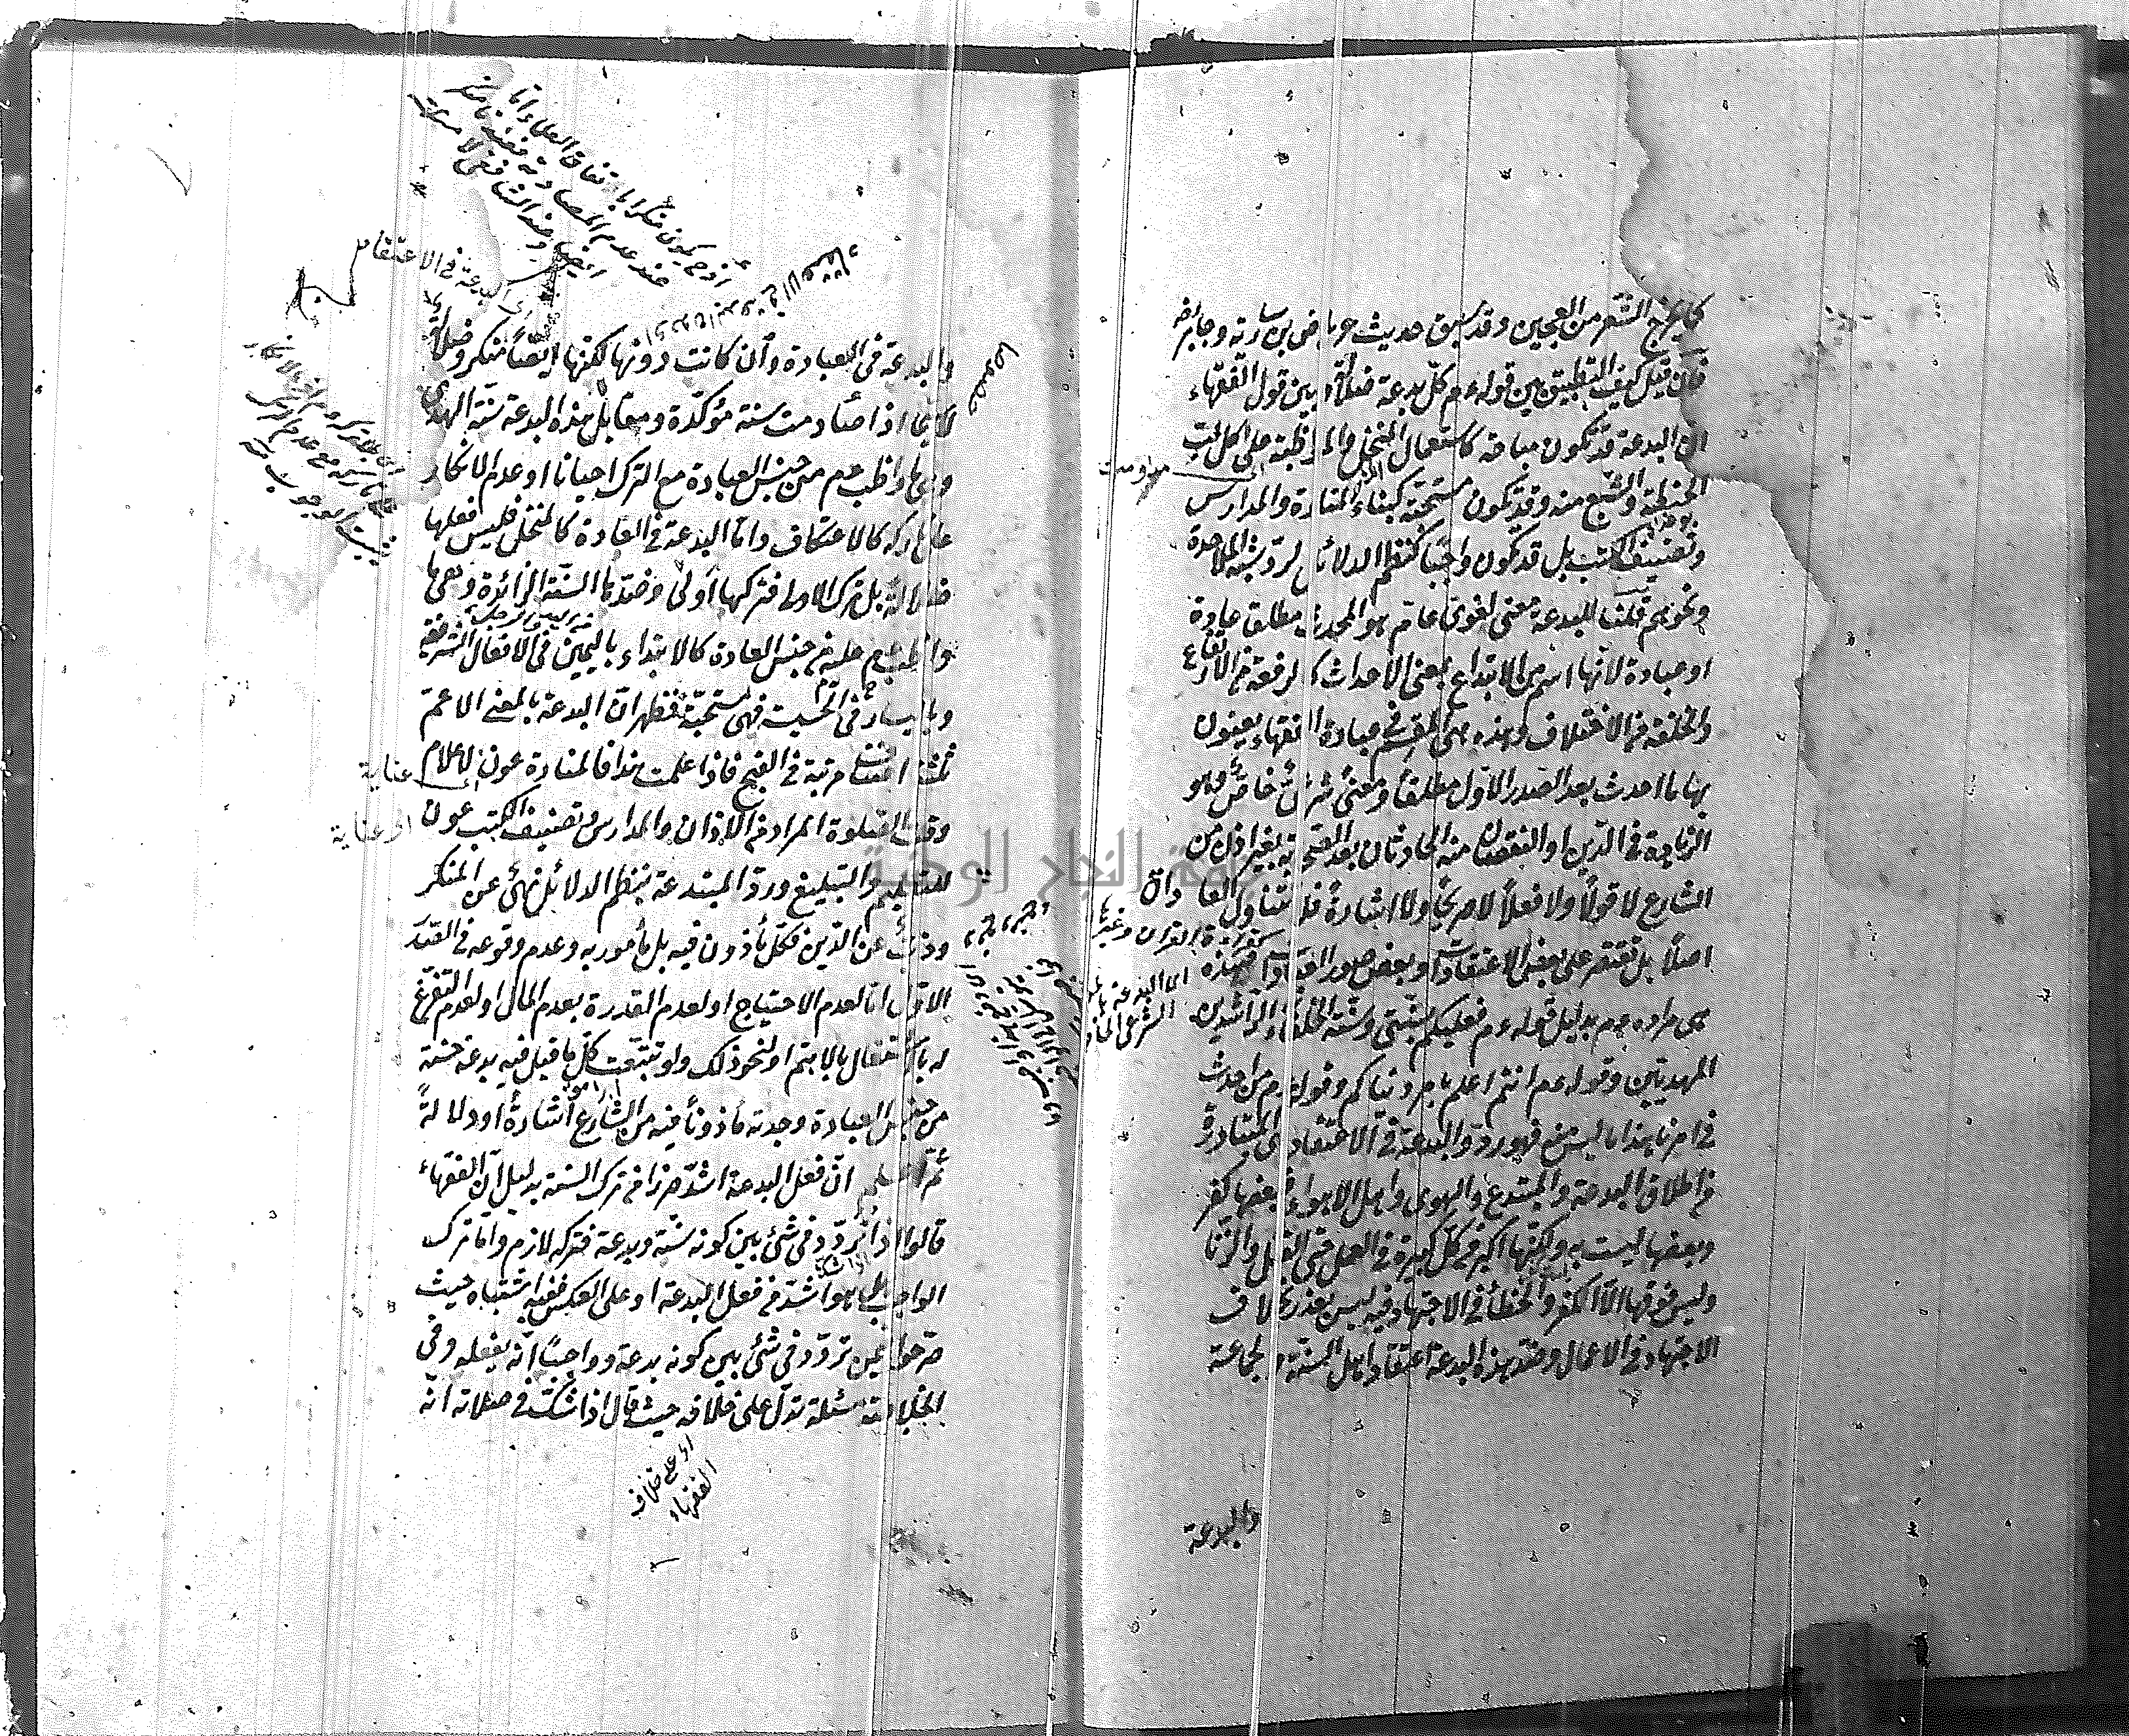 كما يخرج الشعر من العجين وقد سبق حديث عرباض بن سارية وجابر رضه
فان قيل كيف التطبيق بين قوله عم كل بدعة ضلالة وبين قول الفقهاء
ان البدعة قد تكون مباحة كاستعمال المنخل والمواظبة على اكل لب
الحنطة والشبع منه وقد تكون مستحبة كبناء المنارة والمدارس
وتصنيف الكتب بل قد تكون واجبا كنظم الدلائل لرد شبه الملاحدة
ونحوهم قلنا للبدعة معنى لغوى عام هو المحدث مطلقا عادة
او عبادة لانها اسم من الابتداع بمعنى الاحداث كالرفعة من الارتفاع
والخلفة من الاختلاف وهذه هى المقسم فى عبارة الفقهاء يعنون
بها ما احدث بعد الصدر الاول مطلقا ومعنى شرعى خاص وهو
الزيادة فى الدين او النقصان منه الحادثان بعد الصحابة بغير اذن من
الشارع لا قولا ولا فعلا لا صريحا ولا اشارة فلا تتناول العادات
اصلا بل تقتصر على بعض الاعتقادات وبعض صور العبادات فهذه
هى مراده عم بدليل قوله عم فعليكم بسنتى وسنة الخلفاء الراشدين
المهديين وقوله عم انتم اعلم بامر دنياكم وقوله عم من احدث
فى امرنا هذا ما ليس منه فهو رد والبدعة فى الاعتقاد هى المتبادرة
من اطلاق البدعة والمبتدع والهوى واهل الاهواء فبعضها كفر
وبعضها ليست به ولكنها اكبر من كل كبيرة فى العمل حتى القتل والزنا
وليس فوقها الا الكفر والخطأ فى الاجتهاد فيه ليس بعذر بخلاف
الاجتهاد فى الاعمال وضد هذه البدعة اعتقاد اهل السنة والجماعة
والبدعة
والبدعة فى العبادة وان كانت دونها لكنها ايضا منكر وضلالة
لا سيما اذا صادمت سنة مؤكدة ومقابل هذه البدعة سنة الهدى
وهى ما واظب عم من جنس العبادة مع الترك احيانا او عدم الانكار
على تاركه كالاعتكاف واما البدعة فى العادة كالمنخل فليس فعلها
ضلالة بل ترك الاولى فتركها اولى وضدها السنة الزائدة وهى ما
واظب عم عليه من جنس العادة كالابتداء باليمين فى الافعال الشريفة
وباليسار فى الخسيسة فهى مستحبة فظهر ان البدعة بالمعنى الاعم
ثلثة اصناف مرتبة فى القبح فاذا علمت هذا فالمنارة عون لاعلام
وقت الصلوة المراد من الاذان والمدارس وتصنيف الكتب عون
للتعليم والتبليغ ورد المبتدعة بنظم الدلائل نهى عن المنكر
وذب عن الدين فكل مأذون فيه بل مأمور به وعدم وقوعه فى الصدر
الاول اما لعدم الاحتياج او لعدم القدرة بعدم المال او لعدم التفرغ
له بالاشتغال بالاهم او لنحو ذلك ولو تتبعت كل ما قيل فيه بدعة حسنة
من جنس العبادة وجدته مأذونا فيه من الشارع اشارة او دلالة
ثم اعلم ان فعل البدعة اشد ضررا من ترك السنة بدليل ان الفقهاء
قالوا اذا تردد فى شئ بين كونه سنة وبدعة فتركه لازم واما ترك
الواجب هل هو اشد من فعل البدعة او على العكس ففيه اشتباه حيث
صرحوا فيمن تردد فى شئ بين كونه بدعة وواجبا انه يفعله وفى
الخلاصة مسئلة تدل على خلافه حيث قال اذا شك فى صلاته انه
اى على خلاف
الفقهاء
اى البدعة فى الاعتقاد
خصوصا
جامعة النجاح الوطنية